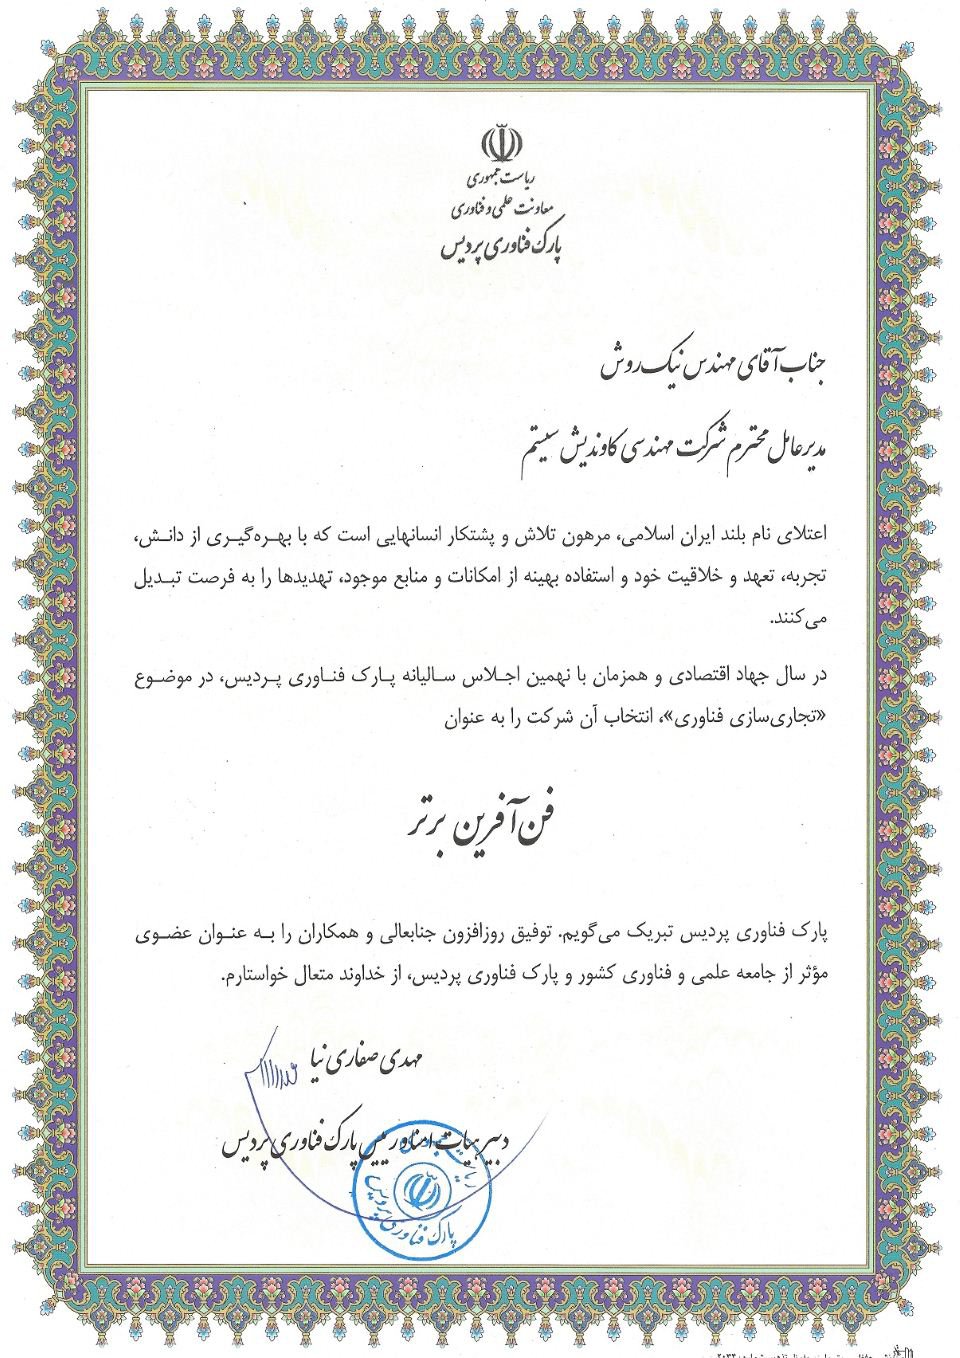 ریاست جمهوری
معاونت علمی و فناوری
پارک فناوری پردیس
جناب آقای مهندس نیک روش
مدیرعامل محترم شرکت مهندسی کاوندیش سیستم
اعتلای نام بلند ایران اسلامی، مرهون تلاش و پشتکار انسانهایی است که با بهره‌گیری از دانش،
تجربه، تعهد و خلاقیت خود و استفاده بهینه از امکانات و منابع موجود، تهدیدها را به فرصت تبدیل
می‌کنند.
در سال جهاد اقتصادی و همزمان با نهمین اجلاس سالیانه پارک فناوری پردیس، در موضوع
«تجاری‌سازی فناوری»، انتخاب آن شرکت را به عنوان
فن آفرین برتر
پارک فناوری پردیس تبریک می‌گویم. توفیق روزافزون جنابعالی و همکاران را به عنوان عضوی
مؤثر از جامعه علمی و فناوری کشور و پارک فناوری پردیس، از خداوند متعال خواستارم.
مهدی صفاری نیا
دبیر هیات امناء و رییس پارک فناوری پردیس
ریاست جمهوری
پارک فناوری پردیس